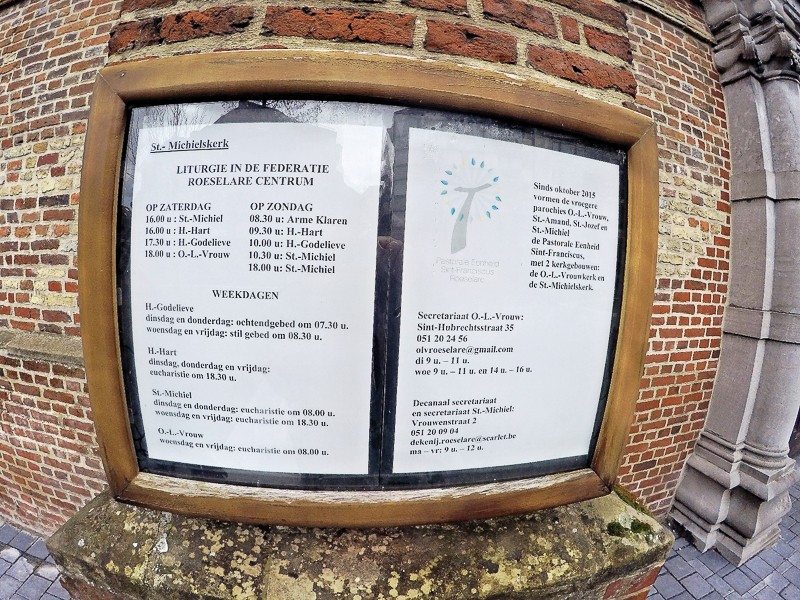 St.- Michielskerk
LITURGIE IN DE FEDERATIE
ROESELARE CENTRUM
OP ZATERDAG
16.00 u : St.-Michiel
16.00 u : H.-Hart
17.30 u : H.-Godelieve
18.00 u : O.-L.-Vrouw
OP ZONDAG
08.30 u : Arme Klaren
09.30 u : H.-Hart
10.00 u : H.-Godelieve
10.30 u : St.-Michiel
18.00 u : St.-Michiel
WEEKDAGEN
H.-Godelieve
dinsdag en donderdag: ochtendgebed om 07.30 u.
woensdag en vrijdag: stil gebed om 08.30 u.
H.-Hart
dinsdag, donderdag en vrijdag:
eucharistie om 18.30 u.
St.-Michiel
dinsdag en donderdag: eucharistie om 08.00 u.
woensdag en vrijdag: eucharistie om 18.30 u.
O.-L.-Vrouw
woensdag en vrijdag: eucharistie om 08.00 u.
Pastorale Eenheid
Sint-Franciscus
Roeselare
Sinds oktober 2015
vormen de vroegere
parochies O.-L.-Vrouw,
St.-Amand, St.-Jozef en
St.-Michiel
de Pastorale Eenheid
Sint-Franciscus,
met 2 kerkgebouwen:
de O.-L.-Vrouwkerk en
de St.-Michielskerk.
Secretariaat O.-L.-Vrouw:
Sint-Hubrechtsstraat 35
051 20 24 56
olvroeselare@gmail.com
di 9 u. – 11 u.
woe 9 u. – 11 u. en 14 u. – 16 u.
Decanaal secretariaat
en secretariaat St.-Michiel:
Vrouwenstraat 2
051 20 09 04
dekenij.roeselare@scarlet.be
ma – vr: 9 u. – 12 u.